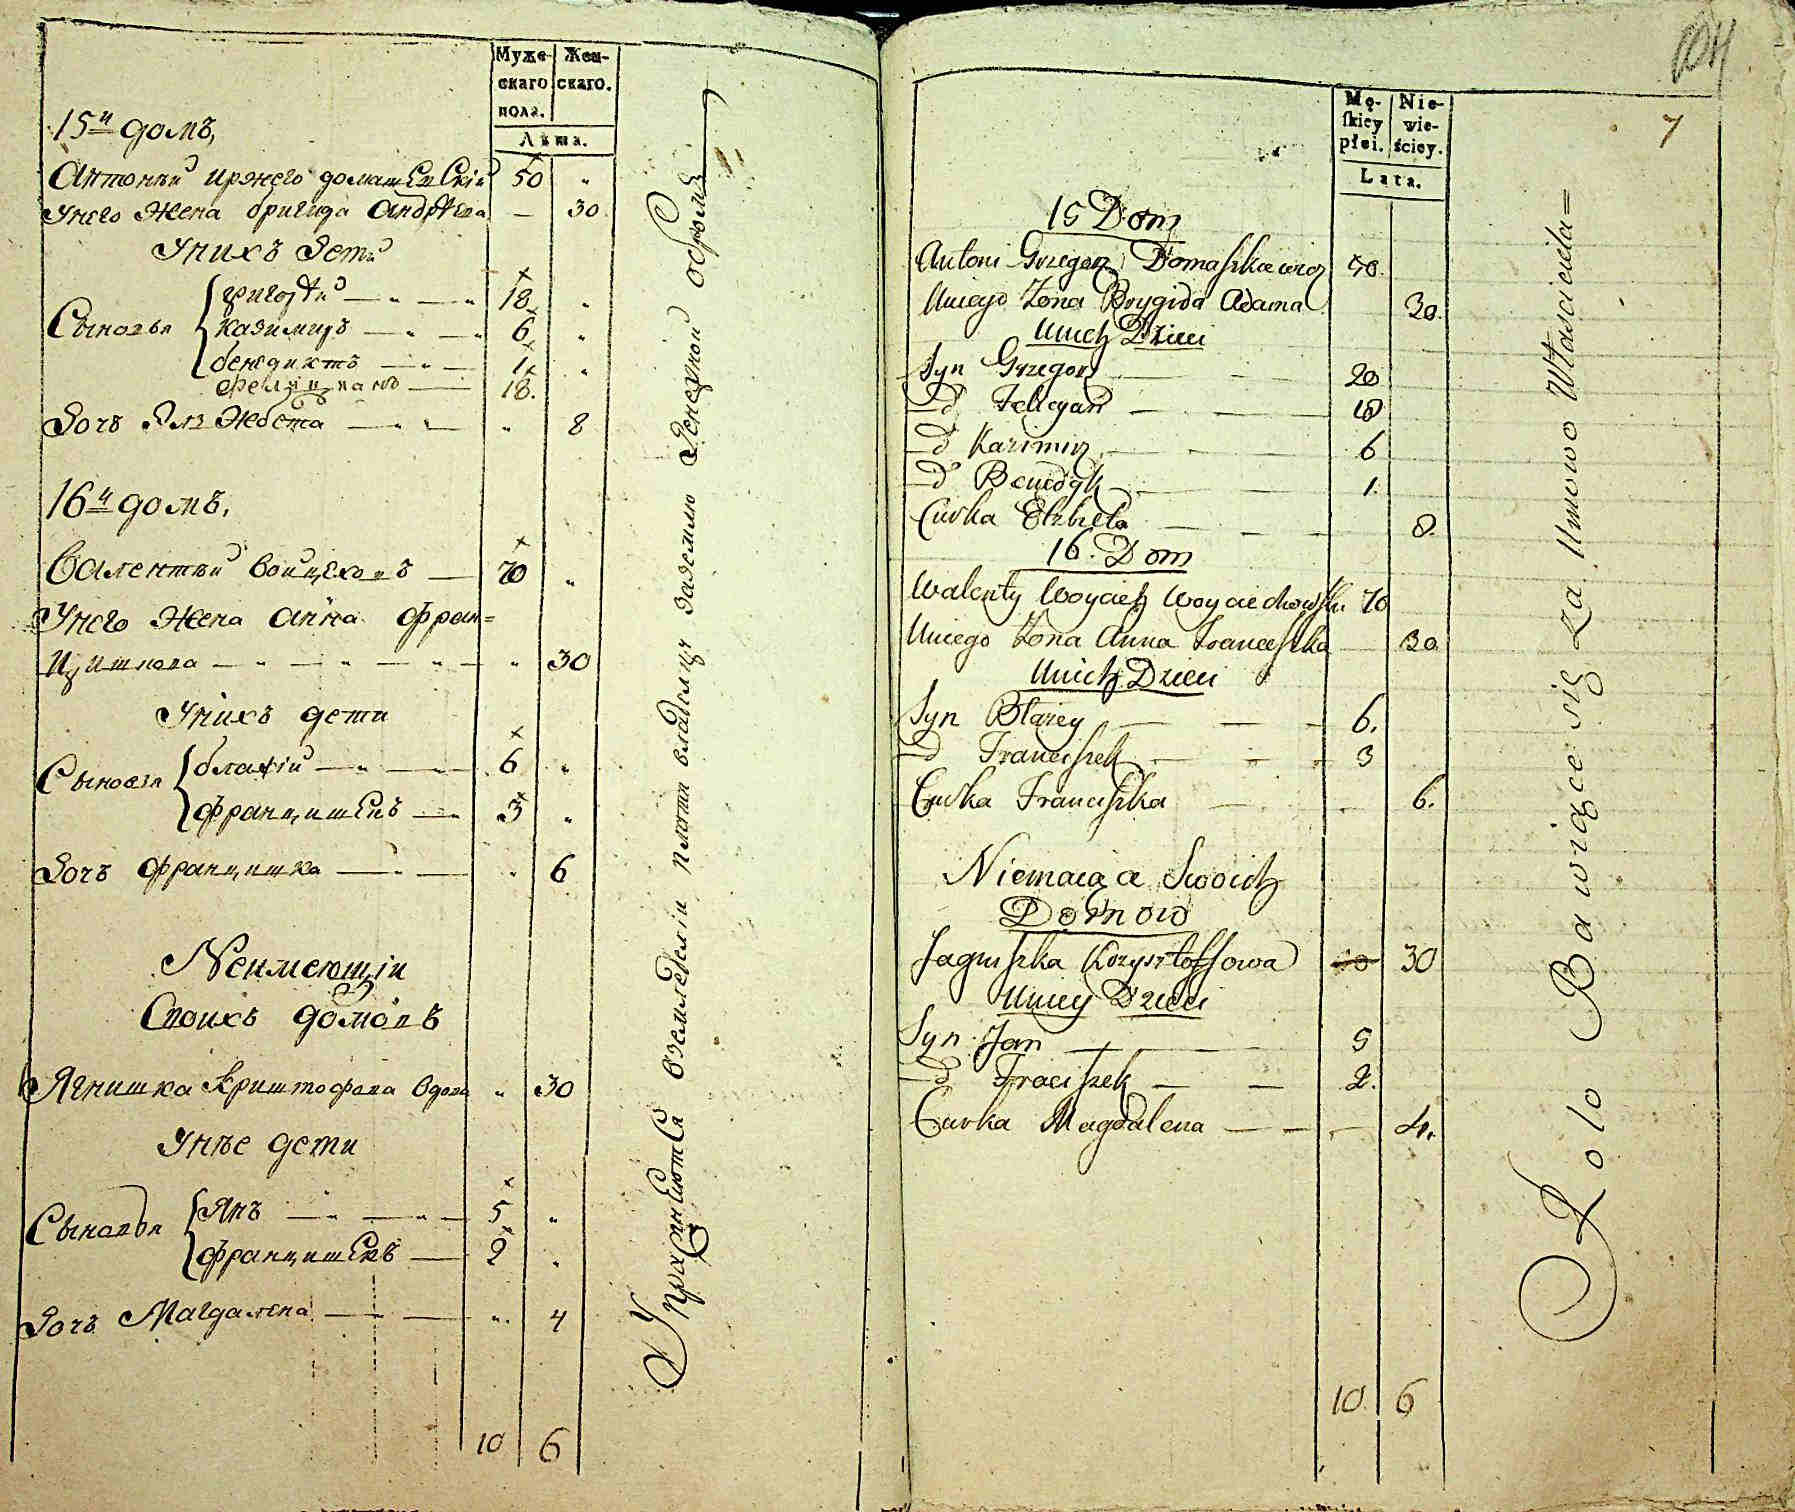 Муже-
скаго
пола.
Жен-
скаго.
Лѣта.
15й домъ,
Антоній домашевскій 50 "
Унего Жена бригида Андрѣева — 30
Унихъ дети
Сыновья
григорій — " — " 18 "
казимиръ — " — " 6 "
бенедиктъ — " — 1 "
фелиціянъ — 18.
Дочь Элжбета — " — " 8
16й домъ,
Валентій Войцеховъ — 70 "
Унего Жена Анна Фран=
цишкова — " — " — " — " 30
Унихъ дети
Сыновья
блажій — " — 6 "
францишекъ — 3 "
Дочь францишка — " — " 6
Неимеющіи
Своихъ домовъ
Ягнишка Криштофова вдова " 30
Унѣе дети
Сыновья
Янъ — " — " — 5 "
францишекъ — 2 "
Дочь Магдалена — — " 4
10 6
Упражняются вземледеліи платя владелцу заземлю денежной оброкъ
104
7
Mę-
skiey
płci.
Nie-
wie-
ściey.
Lata.
15 Dom
Antoni Grzegorz Domaszkiewicz 50.
Uniego Żona Brygida Adama 30.
Unich Dzieci
Syn Grzegorz — — 20
—d Felicyan — — 18
—d Kazimirz — — 6
—d Benedyk — — 1.
Curka Elzbieta — — — 8.
16. Dom
Walenty Woyciech Woyciechowski 70
Uniego Żona Anna Franciszka — 30
Unich Dzieci
Syn Błażey — — — 6.
—d Franciszek — — 3
Curka Franciszka — — — 6.
Niemaiąca Swoich
Domow
Jagniszka Krzysztoffowa 30
Uniey Dzieci
Syn Jan — — — 5
—d Fraciszek — — 2.
Curka Magdalena — — — 4.
10 6
Kolo Bawiące się za Umowo Własciciela=